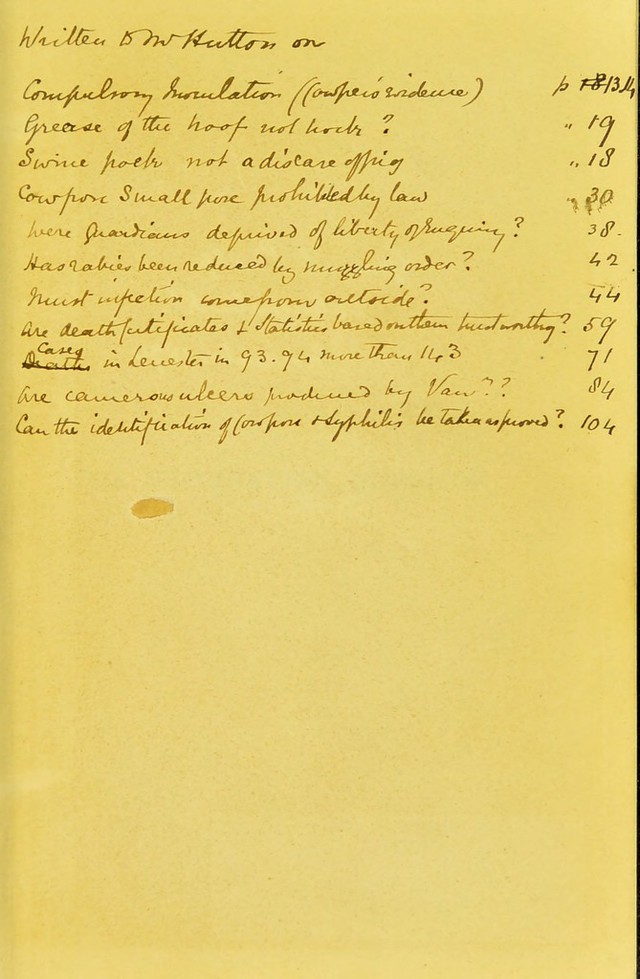 Written to Mr Hutton on
Compulsory Inoculation (Cowper's evidence) p 13.14
Grease of the hoof not hock? " 19
Swine pock not a disease of pig " 18
Cowpox Small pox prohibited by law " 30
Were Guardians deprived of liberty of Enquiry? 38.
Has rabies been reduced by muzzling order? 42
Must infection come from outside? 44
Are death certificates & Statistics based on them trustworthy? 59
Deaths Cases in Leicester in 93.94 more than 143 71
Are cancerous ulcers produced by Vacc?? 84
Can the identification of Cowpox & Syphilis be taken as proved? 104